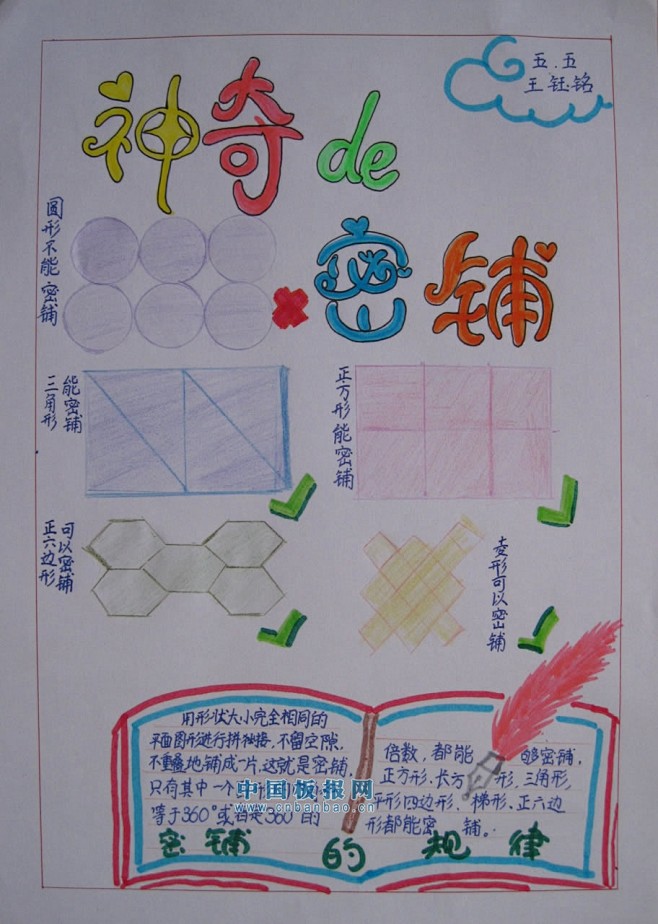 五.五
王钰铭
神奇de
密铺
圆形不能密铺
三角形
能密铺
正方形能密铺
正六边形
可以密铺
菱形可以密铺
用形状大小完全相同的
平面图形进行拼接,不留空隙,
不重叠地铺成一片,这就是密铺,
只有其中一个
等于360°或者是360°的
倍数,都能够密铺,
正方形、长方形、三角形,
平行四边形、梯形、正六边
形都能密铺。
密铺的规律
中国板报网
www.cnbanbao.cn